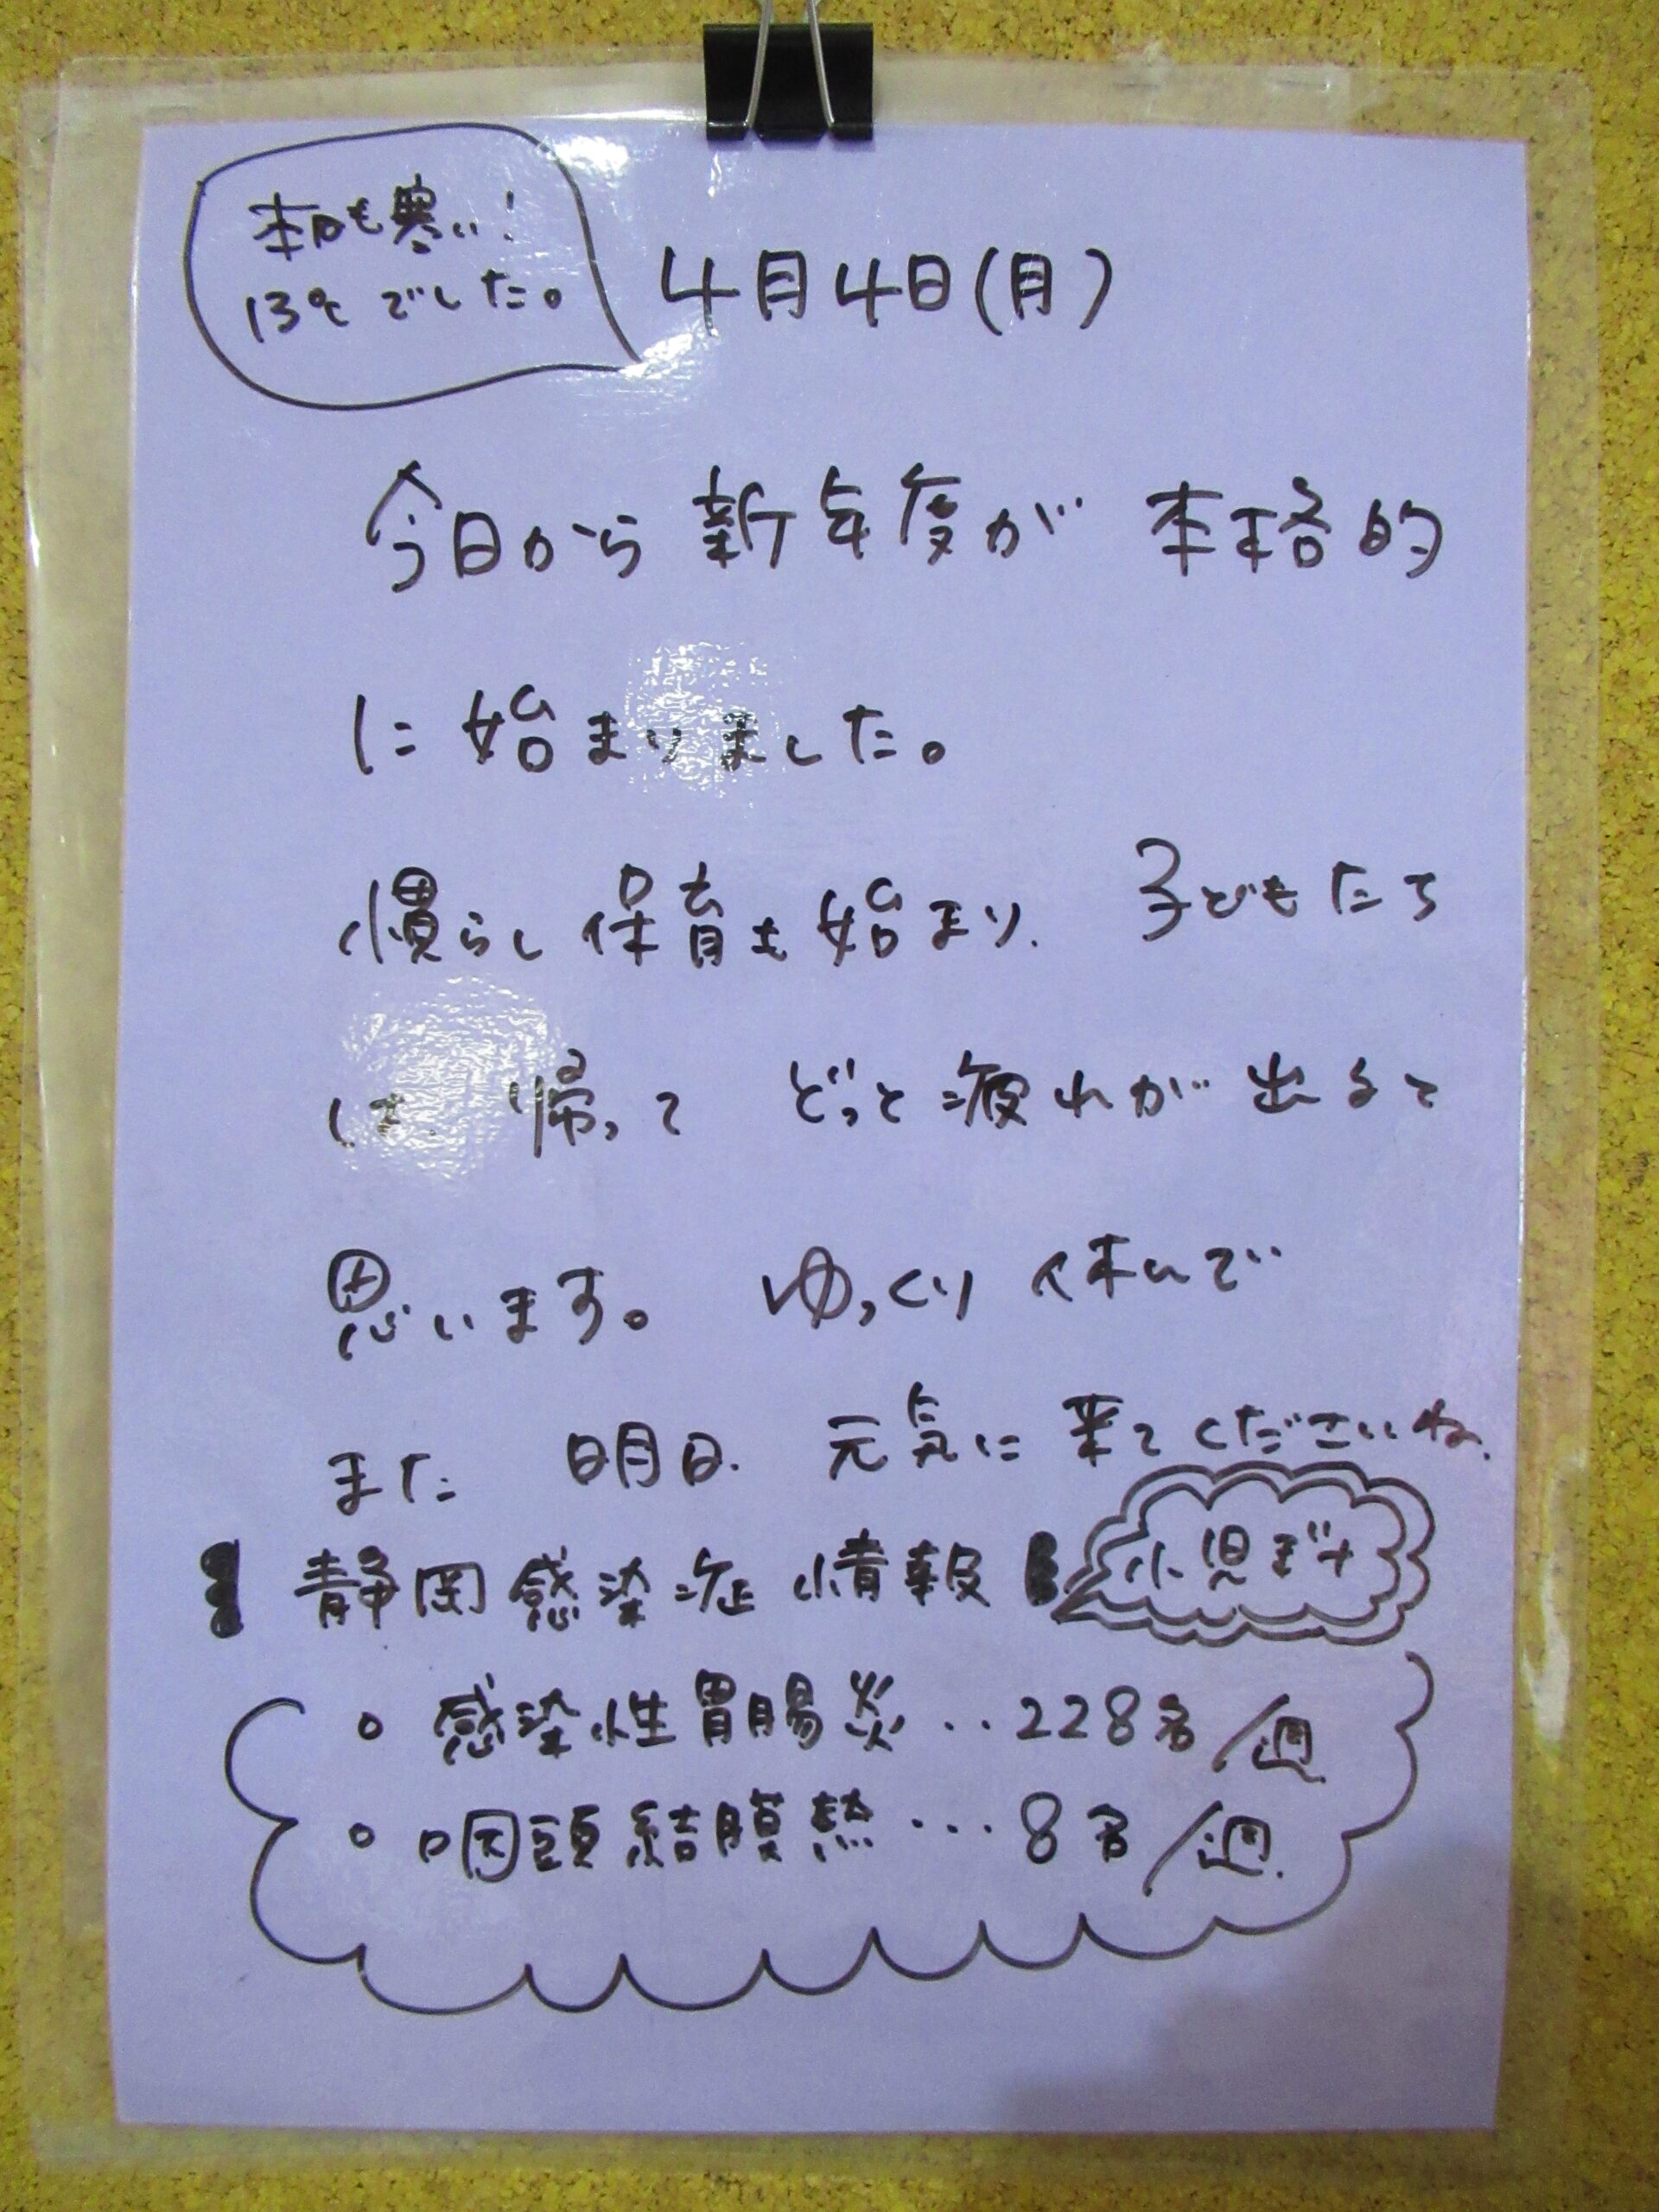 本日も寒い!
13℃でした。
4月4日(月)
今日から新年度が本格的
に始まりました。
慣らし保育も始まり、子どもたち
は、帰って どっと疲れが出ると
思います。ゆっくり休んで
また 明日、元気に来てくださいね。
静岡感染症情報
小児
・感染性胃腸炎‥228名/週
・咽頭結膜熱…8名/週